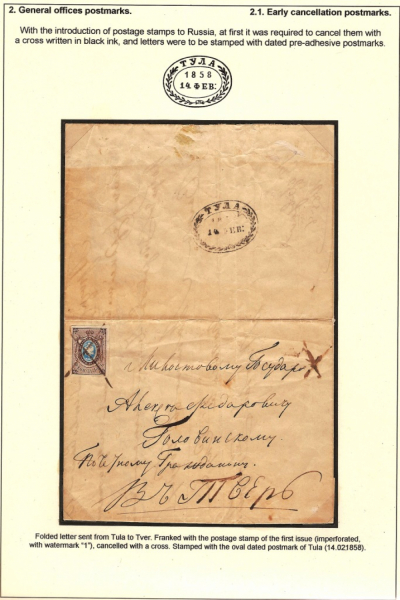 2. General offices postmarks.
2.1. Early cancellation postmarks.
With the introduction of postage stamps to Russia, at first it was required to cancel them with
a cross written in black ink, and letters were to be stamped with dated pre-adhesive postmarks.
ТУЛА
1858
14. ФЕВ:
ТУЛА
14. ФЕВ:
Милостовому Государю
Головинскому.
ВЪ ТВЕРЬ
Folded letter sent from Tula to Tver. Franked with the postage stamp of the first issue (imperforated,
with watermark "1"), cancelled with a cross. Stamped with the oval dated postmark of Tula (14.021858).